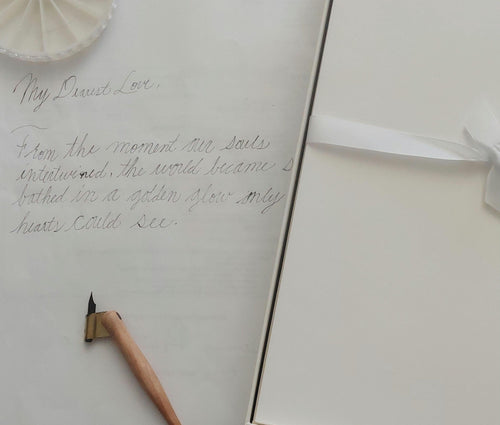 My Dearest Love,
From the moment our souls
intertwined, the world became s
bathed in a golden glow only
hearts could see.